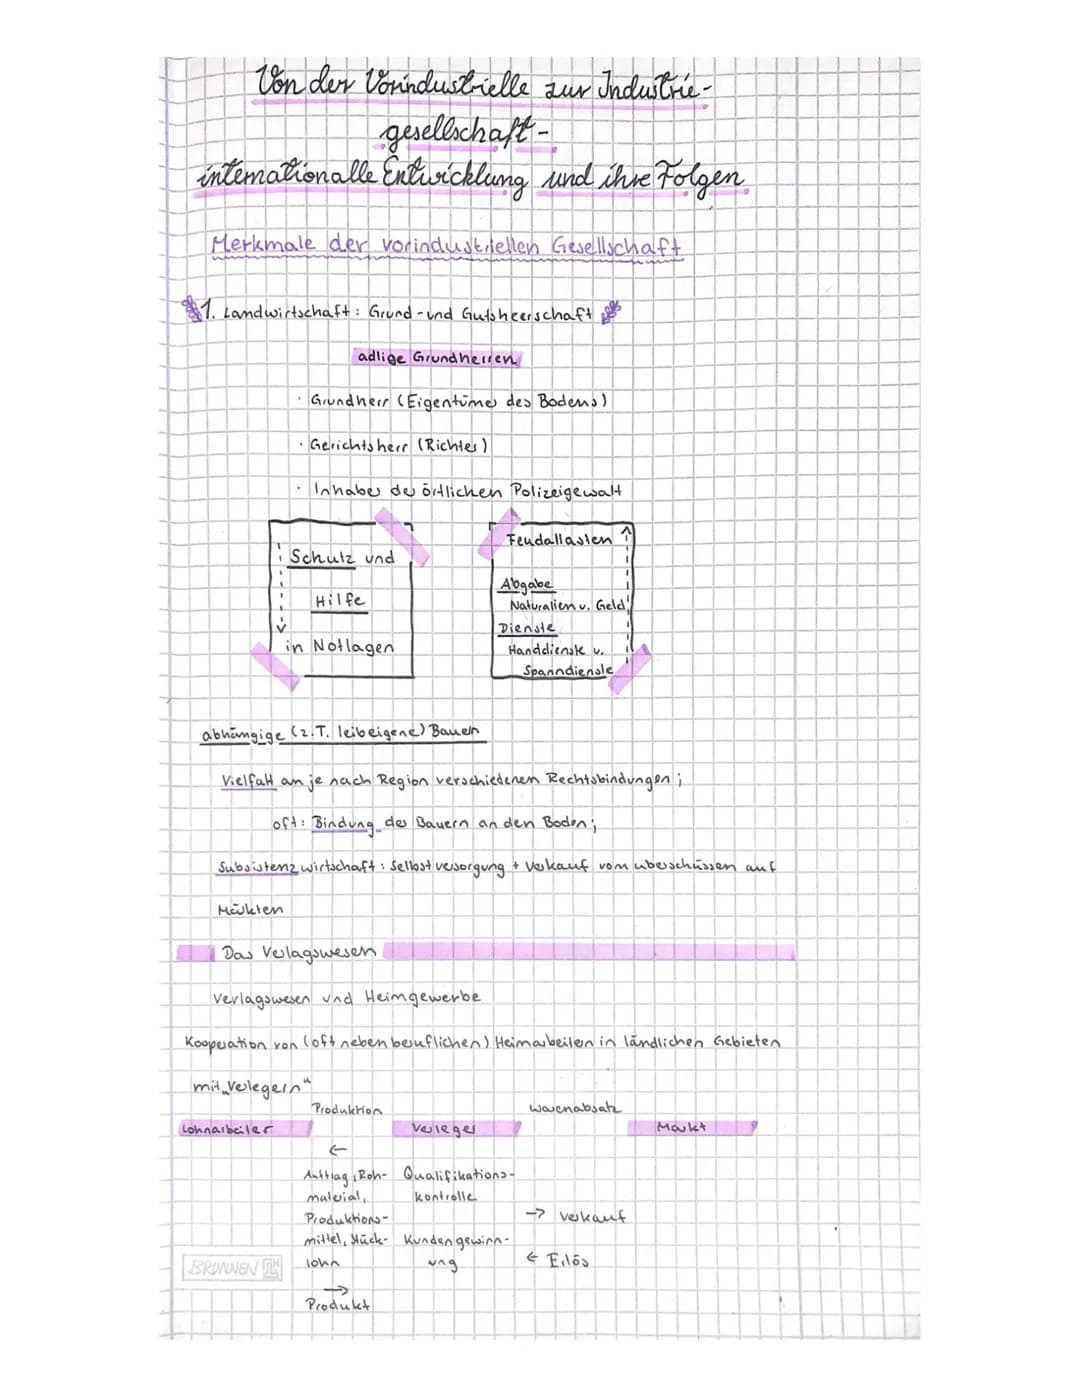 Von der Vorindustrielle zur Industrie-
gesellschaft-
internationalle Entwicklung und ihre Folgen
Merkmale der vorindustriellen Gesellschaft
1. Landwirtschaft: Grund-und Gutsheerschaft
adlige Grundherren
· Grundherr (Eigentümer des Bodens)
· Gerichtsherr (Richter)
· Inhaber der örtlichen Polizeigewalt
Schutz und
Hilfe
in Notlagen
Feudallasten
Abgabe
Naturalien u. Geld
Dienste
Handdienste u.
Spanndienste
abhängige (z.T. leibeigene) Bauern
Vielfalt an je nach Region verschiedenen Rechtsbindungen;
oft: Bindung der Bauern an den Boden;
Subsistenzwirtschaft: Selbstversorgung + Verkauf vom überschüssen auf
Märkten
Das Verlagswesen
Verlagswesen und Heimgewerbe
Kooperation von (oft nebenberuflichen) Heimarbeiten in ländlichen Gebieten
mit „Verlegern"
Produktion Warenabsatz
Lohnarbeiter Verleger Markt
←
Auftrag, Roh- Qualifikations-
material, kontrolle
Produktions- → Verkauf
mittel, Stück- Kundengewinn-
lohn ung ← Erlös
→
Produkt
BRUNNEN